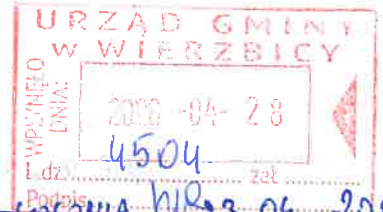 URZĄD GMINY
W WIERZBICY
WPŁYNĘŁO
DNIA:
2020 -04- 28
L.dz. 4504 zał.
Podpis